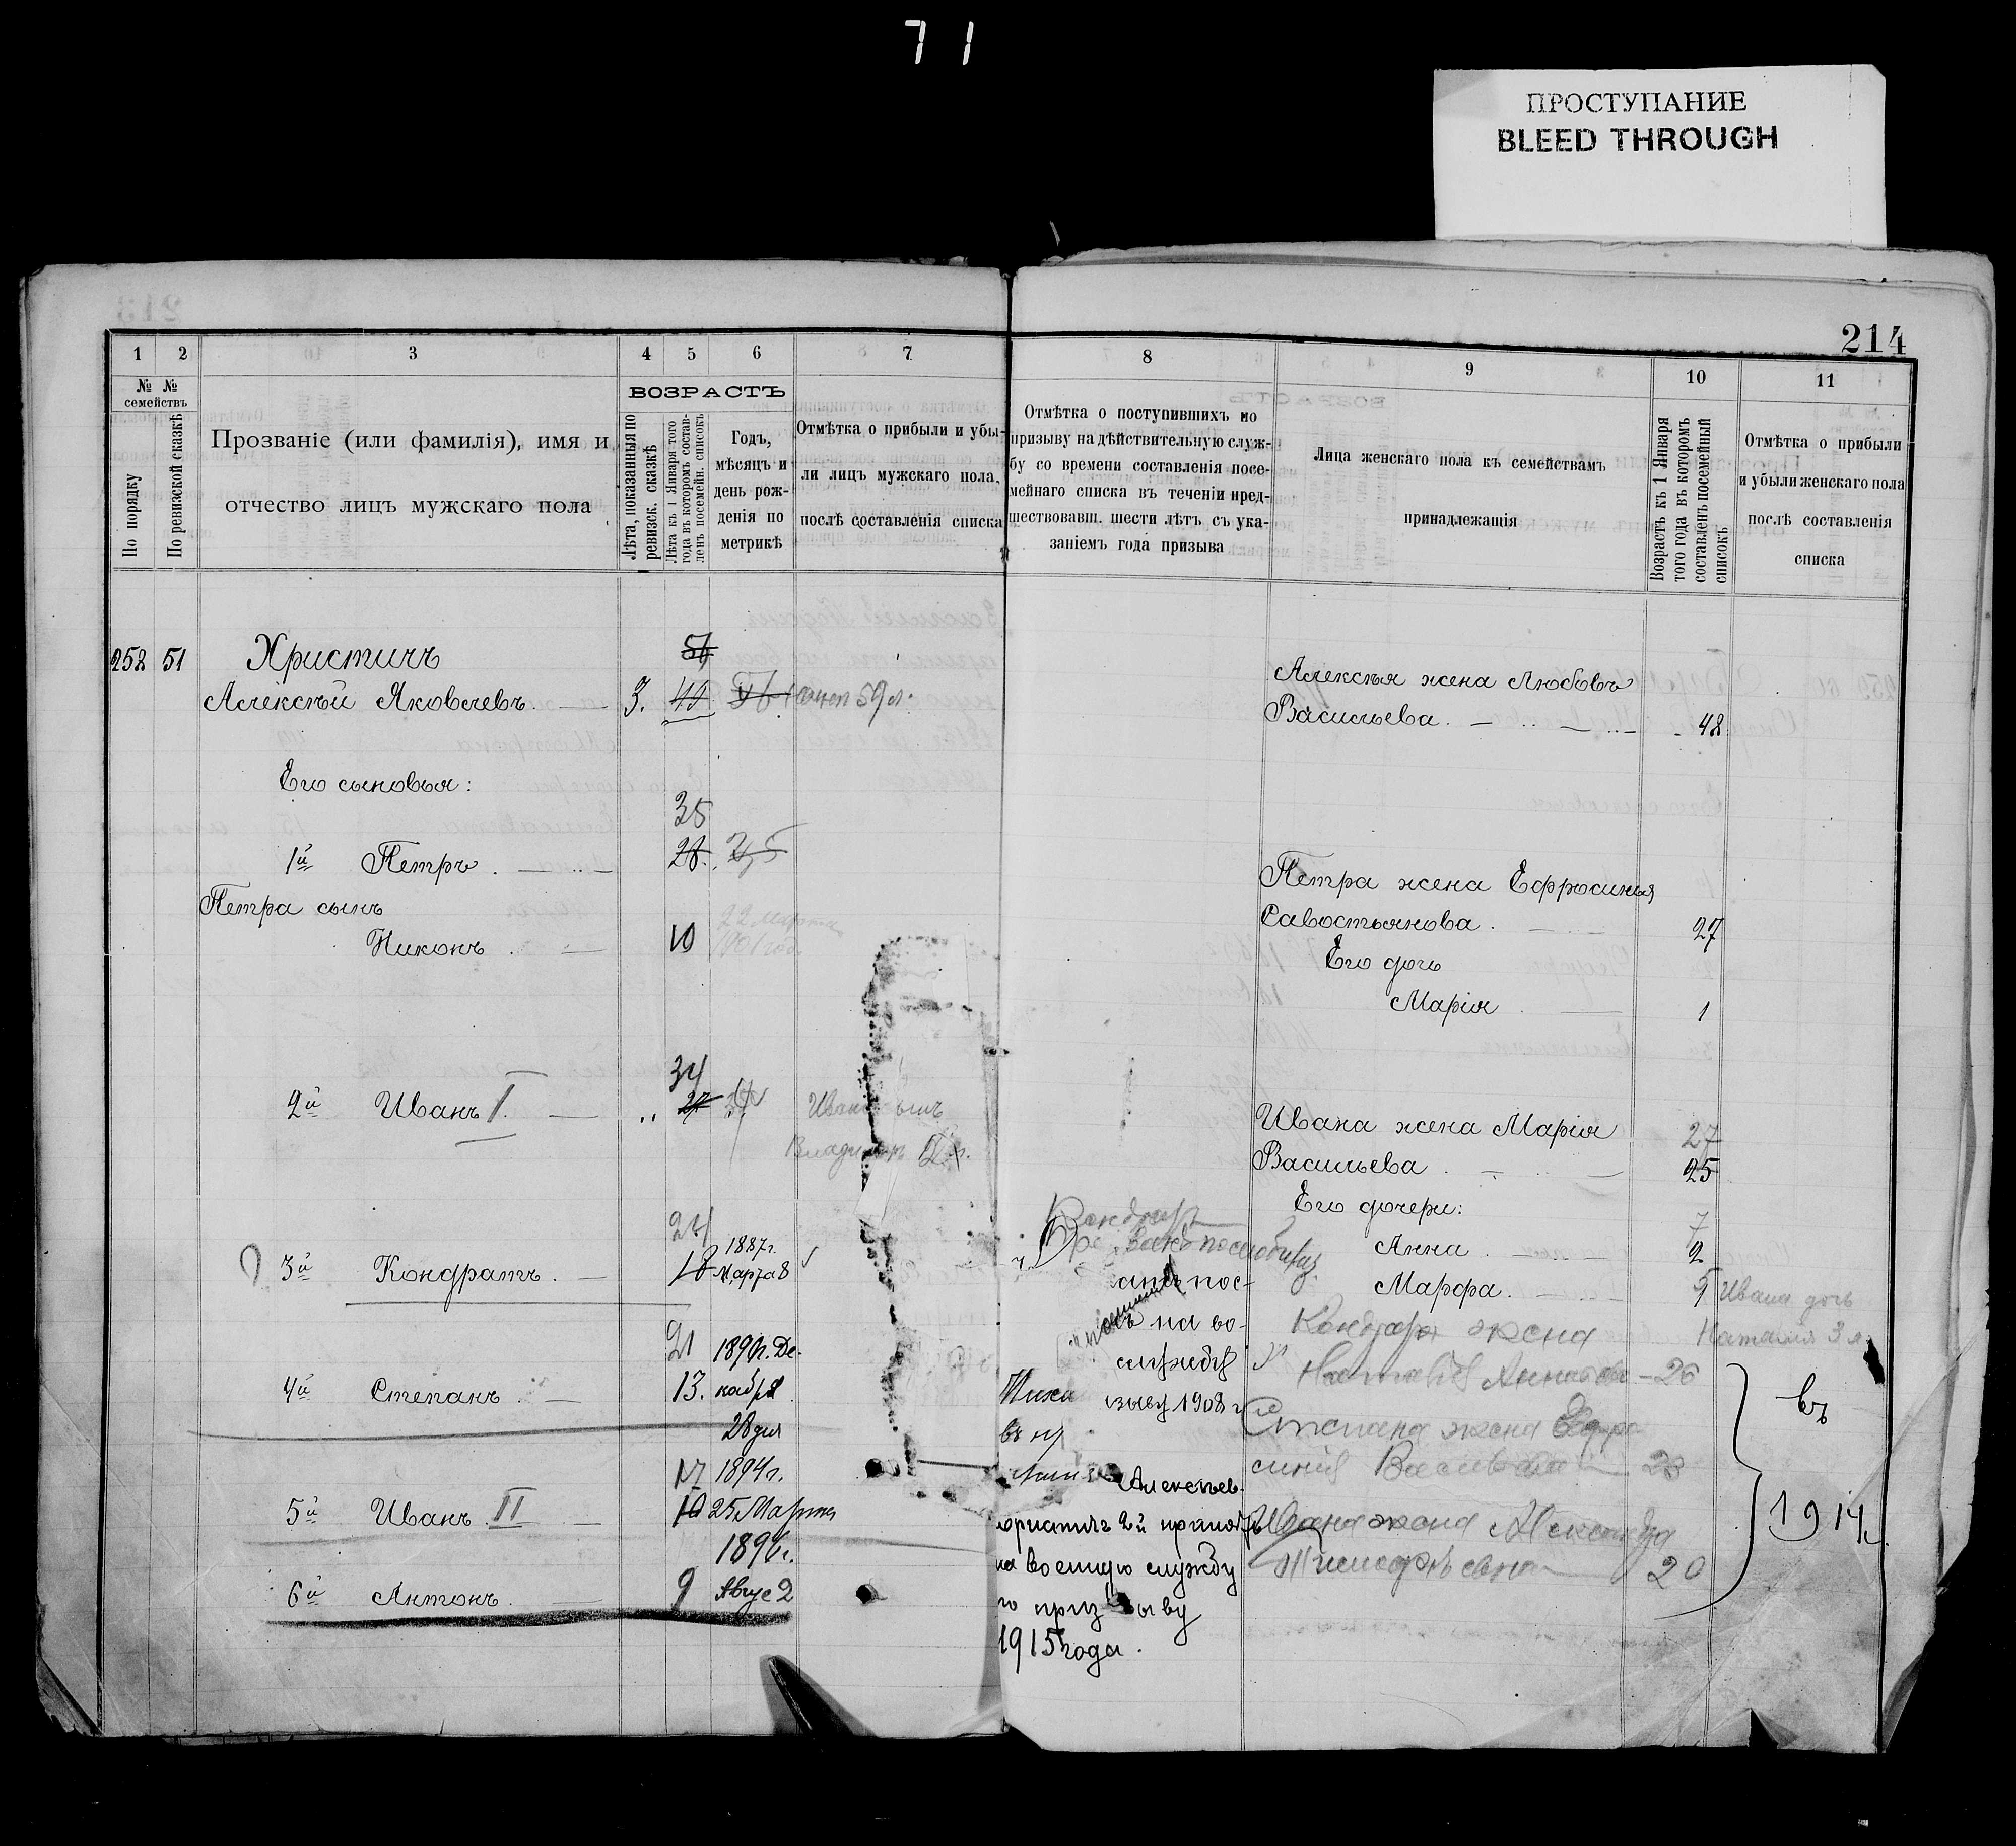 71
ПРОСТУПАНИЕ
BLEED THROUGH
214
1 2 3 4 5 6 7 8 9 10 11
№ №
семействъ
По порядку
По ревизской сказкѣ
Прозваніе (или фамилія), имя и
отчество лицъ мужскаго пола
ВОЗРАСТЪ
Лѣта, показанныя по
ревизск. сказкѣ
Лѣта къ 1 Января того
года въ которомъ состав-
ленъ посемейн. списокъ
Годъ,
мѣсяцъ и
день рож-
денія по
метрикѣ
Отмѣтка о прибыли и убы-
ли лицъ мужскаго пола,
послѣ составленія списка
Отмѣтка о поступившихъ по
призыву на дѣйствительную служ-
бу со времени составленія посе-
мейнаго списка въ теченіи пред-
шествовавш. шести лѣтъ съ ука-
заніемъ года призыва
Лица женскаго пола къ семействамъ
принадлежащія
Возрастъ къ 1 Января
того года въ которомъ
составленъ посемейный
списокъ
Отмѣтка о прибыли
и убыли женскаго пола
послѣ составленія
списка
252 51 Христичъ
Алексѣй Яковлевъ. 3. 59 л.
Его сыновья:
35
1й Петръ. 28.
Петра сынъ
Никонъ 10 22 марта
1901 год.
34
2й Иванъ I. 27
Владимиръ
24 1887 г.
3й Кондратъ. 18 Марта 8
21 1890 г. Де-
4й Степанъ. 13. кабря
28 дня
17 1894 г.
5й Иванъ II 10 25 Марта
1896 г.
6й Антонъ. 9 Авгус 2
Кондрат
на во-
службу
зыву 1908 г
Алексѣев
Христичъ 2й принятъ
на военную службу
по призыву
1915 года.
Алексѣя жена Любовь
Васильева. 48
Петра жена Ефросинья
Савостьянова. 27
Его дочь
Марія 1
Ивана жена Марія 27
Васильева. 25
Его дочери: 7
Анна. 2
Марфа. 5 Ивана дочь
Наталия 3 л.
Кондрата жена
26
Степана жена Ефро
синия 23
Ивана жена Александра
20
въ
1914 г.